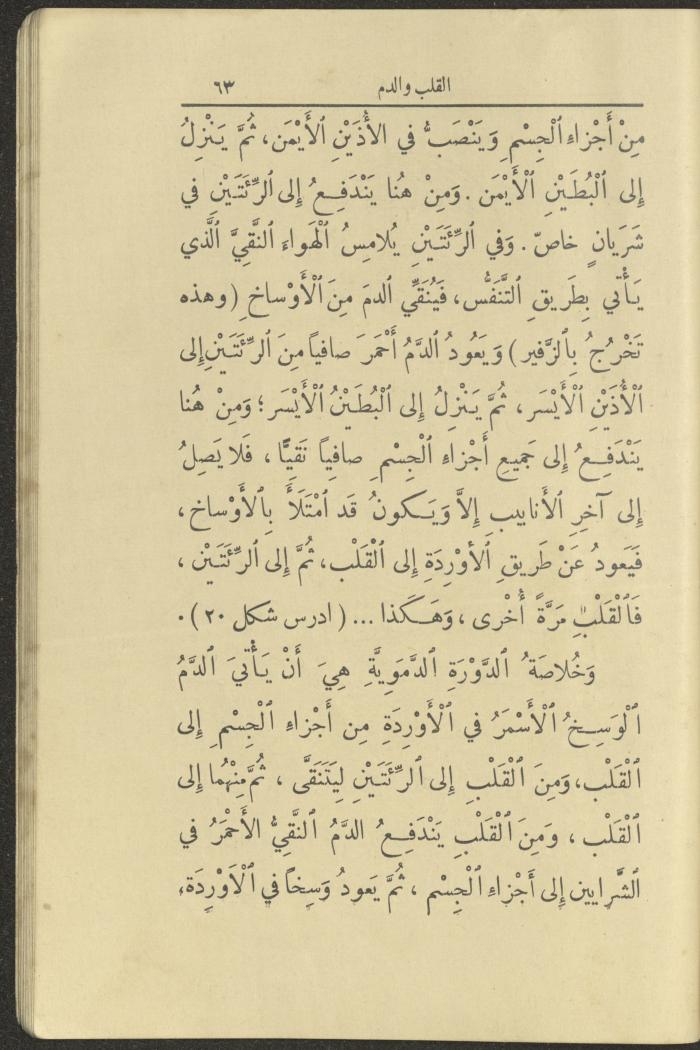 القلب والدم ٦٣
مِنْ أَجْزاءِ ٱلْجِسْمِ وَيَنْصَبُّ في الأُذَيْنِ ٱلأَيْمَن، ثُمَّ يَنْزِلُ
إِلى ٱلْبُطَيْنِ ٱلْأَيْمَن . وَمِنْ هُنا يَنْدَفِعُ إِلى ٱلرِّئَتَيْنِ في
شَرَيانٍ خاصّ . وَفي ٱلرِّئَتَيْنِ يُلامِسُ ٱلْهَواءَ ٱلنَّقِيَّ ٱلَّذي
يَأْتي بِطَريقِ ٱلتَّنَفُّس، فَيُنَقِّي ٱلدمَ مِنَ ٱلْأَوْساخِ (وهذه
تَخْرُجُ بِٱلزَّفير) وَيَعُودُ ٱلدَّمُ أَحْمَرَ صافياً مِنَ ٱلرِّئَتَيْنِ إِلى
ٱلْأُذَيْنِ ٱلْأَيْسَر، ثُمَّ يَنْزِلُ إِلى ٱلْبُطَيْنُ ٱلْأَيْسَر؛ وَمِنْ هُنا
يَنْدَفِعُ إِلى جَميعِ أَجْزاءِ ٱلْجِسْمِ صافِياً نَقِيًّا ، فَلا يَصِلُ
إِلى آخِرِ ٱلأَنابيبِ إِلاَّ وَيَكونُ قَد ٱمْتَلَأَ بِٱلأَوْساخ ،
فَيَعودُ عَنْ طَريقِ ٱلأَوْرِدَةِ إِلى ٱلْقَلْب، ثُمَّ إِلى ٱلرِّئَتَيْن ،
فَٱلْقَلْبِ مَرَّةً أُخْرى ، وَهَكَذا ... ( ادرس شكل ٢٠ ) .
وَخُلاصَةُ ٱلدَّوْرَةِ ٱلدَّمَوِيَّةِ هِيَ أَنْ يَأْتيَ ٱلدَّمُ
ٱلْوَسِخُ ٱلْأَسْمَرُ في ٱلْأَوْرِدَةِ مِن أَجْزاءِ ٱلْجِسْمِ إِلى
ٱلْقَلْب، وَمِنَ ٱلْقَلْبِ إِلى ٱلرِّئَتَيْنِ لِيَتَنَقَّى ، ثُمَّ مِنْهُما إِلى
ٱلْقَلْب ، وَمِنَ ٱلْقَلْبِ يَنْدَفِعُ الدَّمُ ٱلنَّقِيُّ الأَحْمَرُ في
ٱلشَّرايينِ إِلى أَجْزاءِ ٱلْجِسْم ، ثُمَّ يَعودُ وَسِخاً في ٱلْأَوْرِدَة،